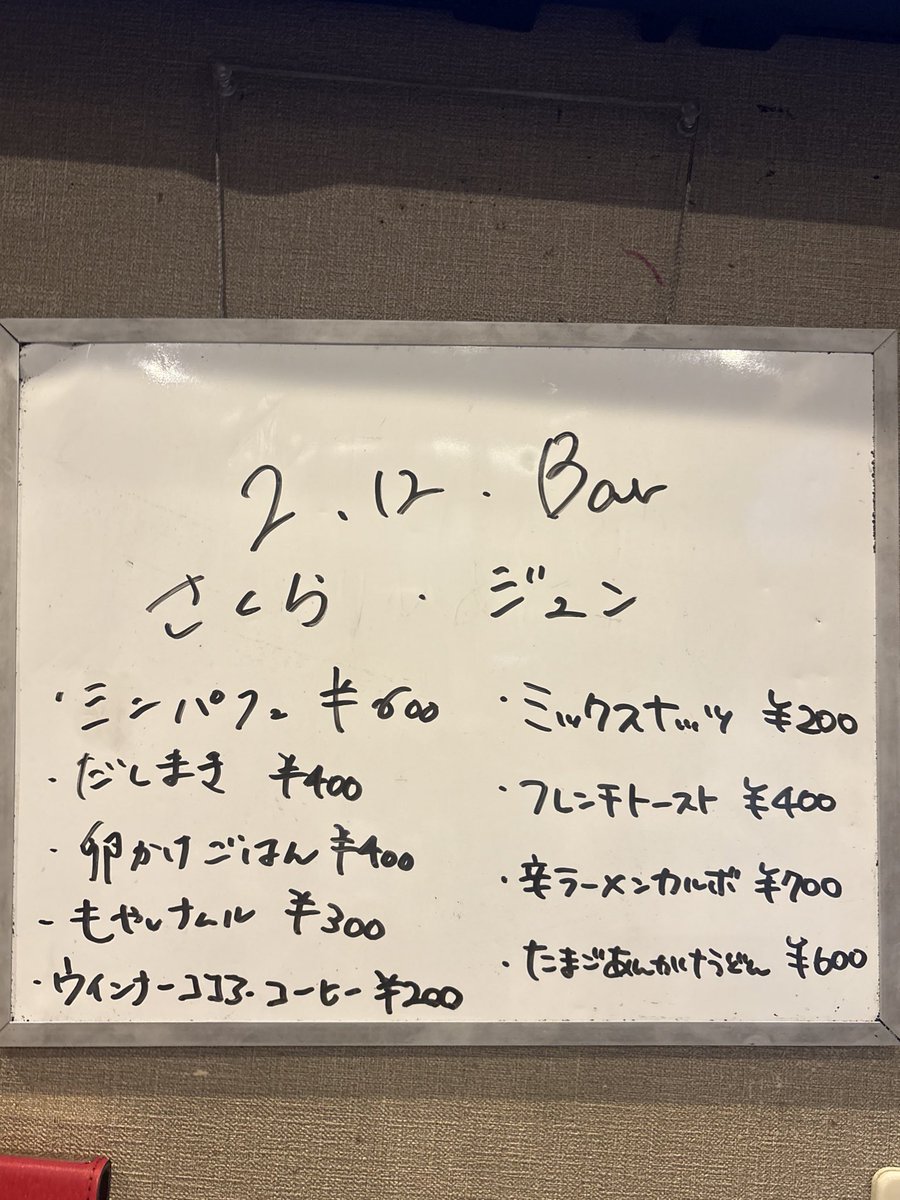 2.12. Bar
さくら・ジュン
・ミンパフェ ¥600
・だしまき ¥400
・卵かけごはん ¥400
・もやしナムル ¥300
・ウインナーココア・コーヒー ¥200
・ミックスナッツ ¥200
・フレンチトースト ¥400
・辛ラーメンカルボ ¥700
・たまごあんかけうどん ¥600